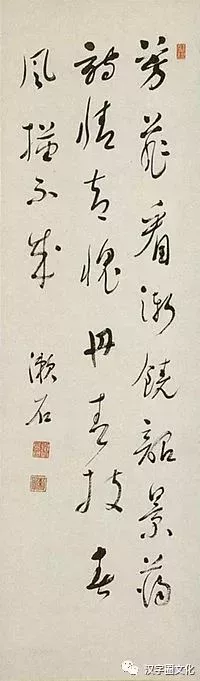 芳菲看漸饒韶景蕩
詩情却愧丹青技春
風描不成
漱石
汉字圈文化